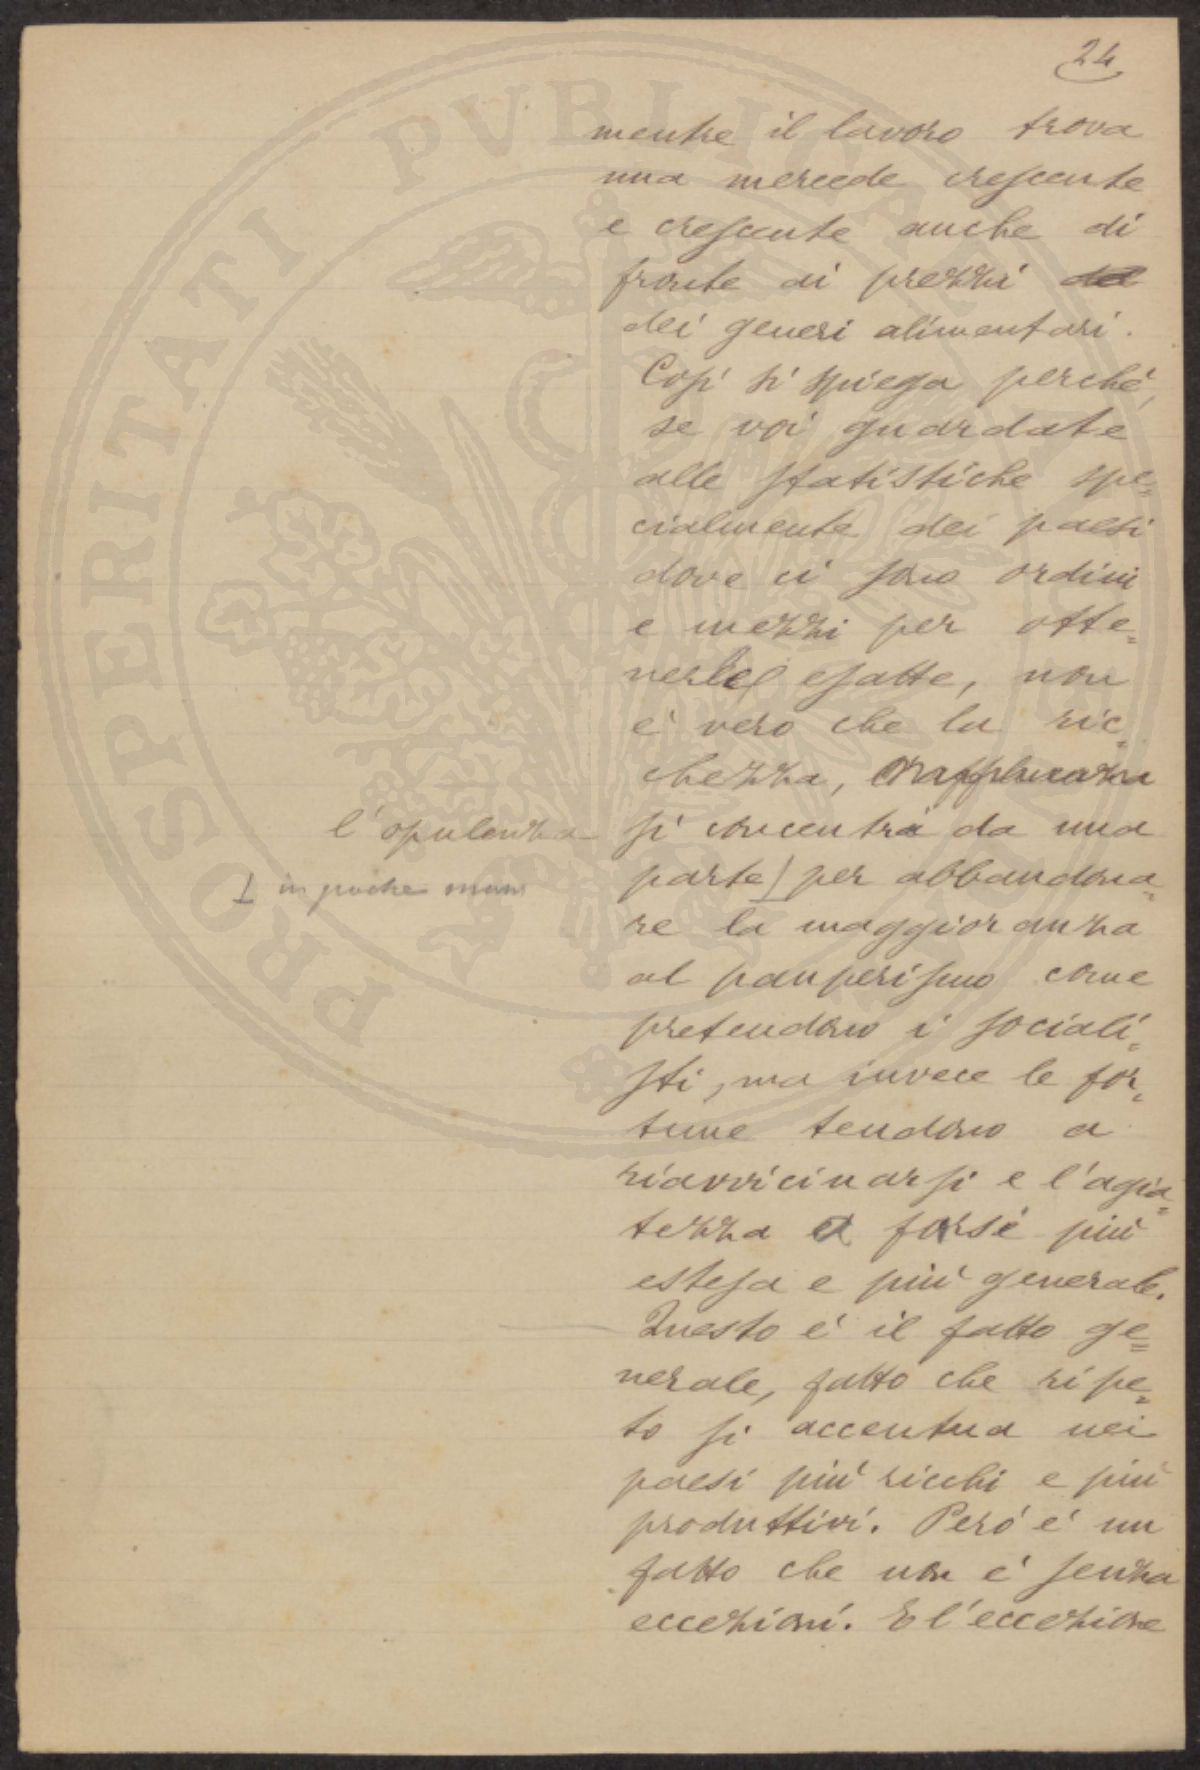 24
mentre il lavoro trova
una mercede crescente
e crescente anche di
fronte ai prezzi
dei generi alimentari.
Così si spiega perché,
se voi guardate
alle statistiche spe=
cialmente dei paesi
dove ci sono ordini
e mezzi per otte=
nerle esatte, non
é vero che la ric=
chezza,
l'opulenza
si concentra da una
⊥ in poche mani
parte ⊥ per abbandona=
re la maggioranza
al pauperismo come
pretendono i sociali=
sti, ma invece le for=
tune tendono a
riavvicinarsi e l'agia=
tezza è forse più
estesa e più generale.
Questo é il fatto ge=
nerale, fatto che ripe=
to si accentua nei
paesi più ricchi e più
produttivi. Peró é un
fatto che non é senza
eccezioni. E l'eccezione
PROSPERITATI PVBLICAE